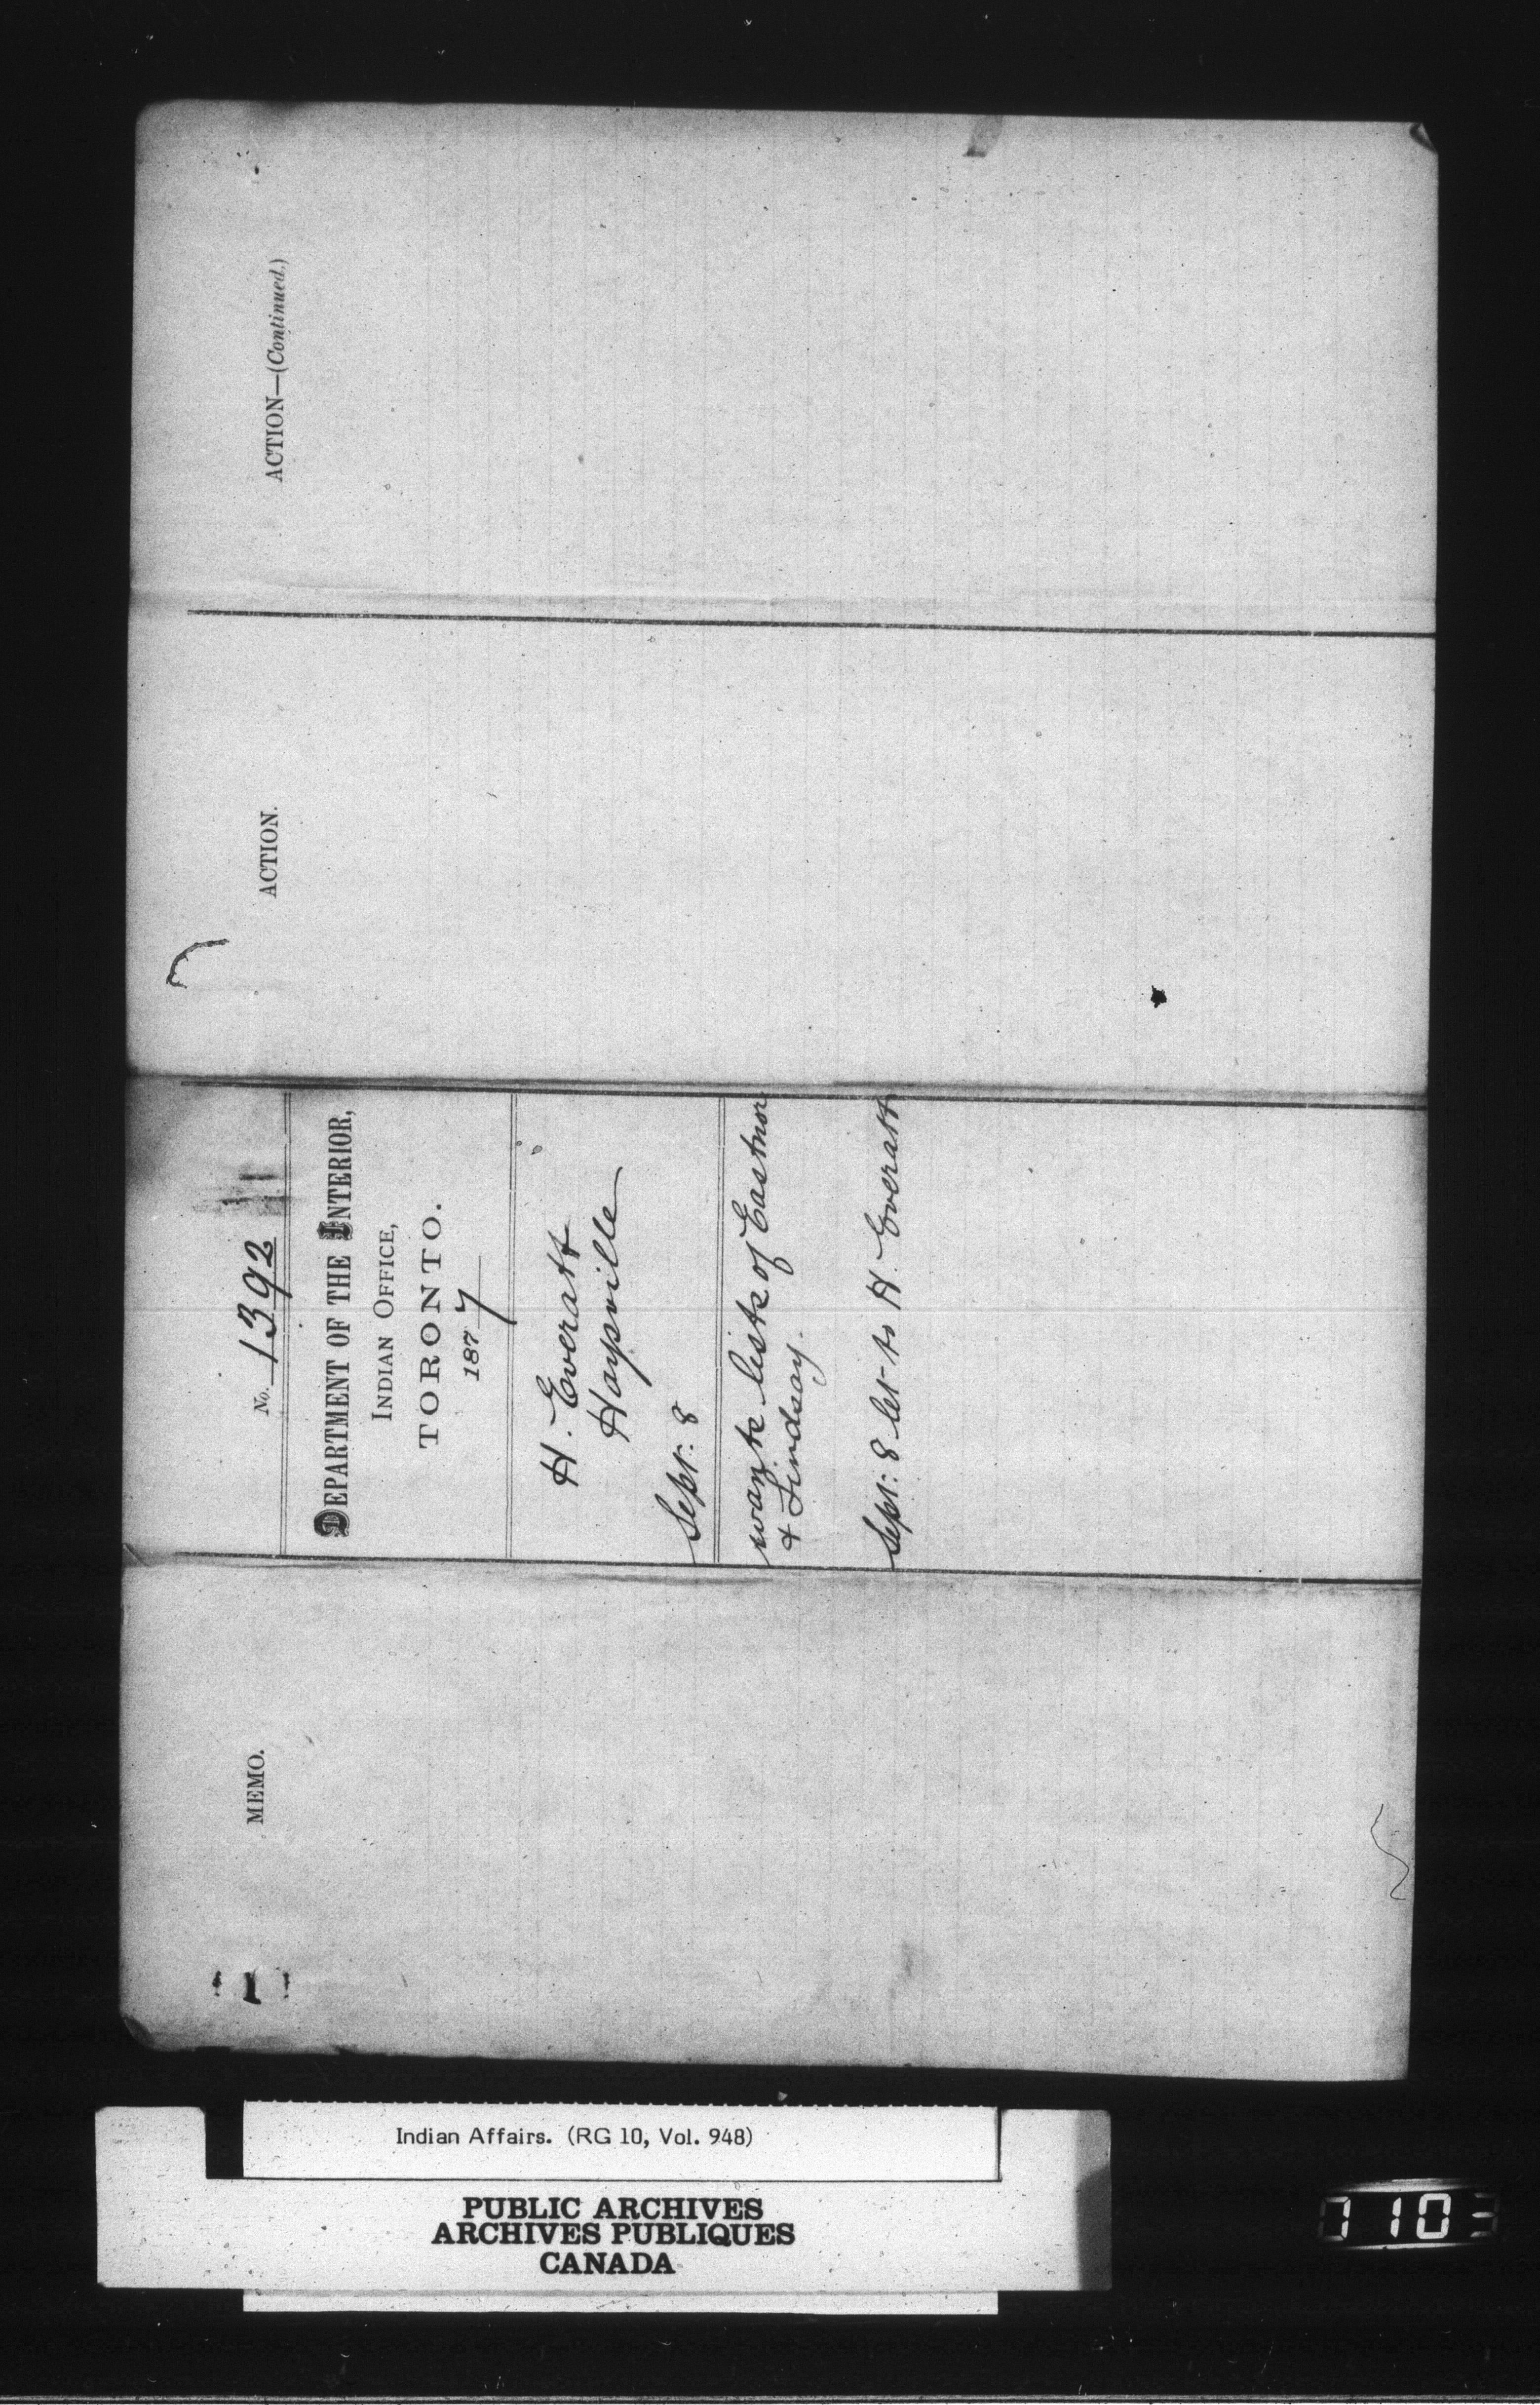 ACTION—(Continued.)
ACTION.
No. 1392
DEPARTMENT OF THE INTERIOR,
INDIAN OFFICE,
TORONTO.
1877
H. Everatt
Haysville
Sept: 8
wants lists of Eastnor
& Lindsay.
Sept: 8 let to H. Everatt
MEMO.
Indian Affairs. (RG 10, Vol. 948)
PUBLIC ARCHIVES
ARCHIVES PUBLIQUES
CANADA